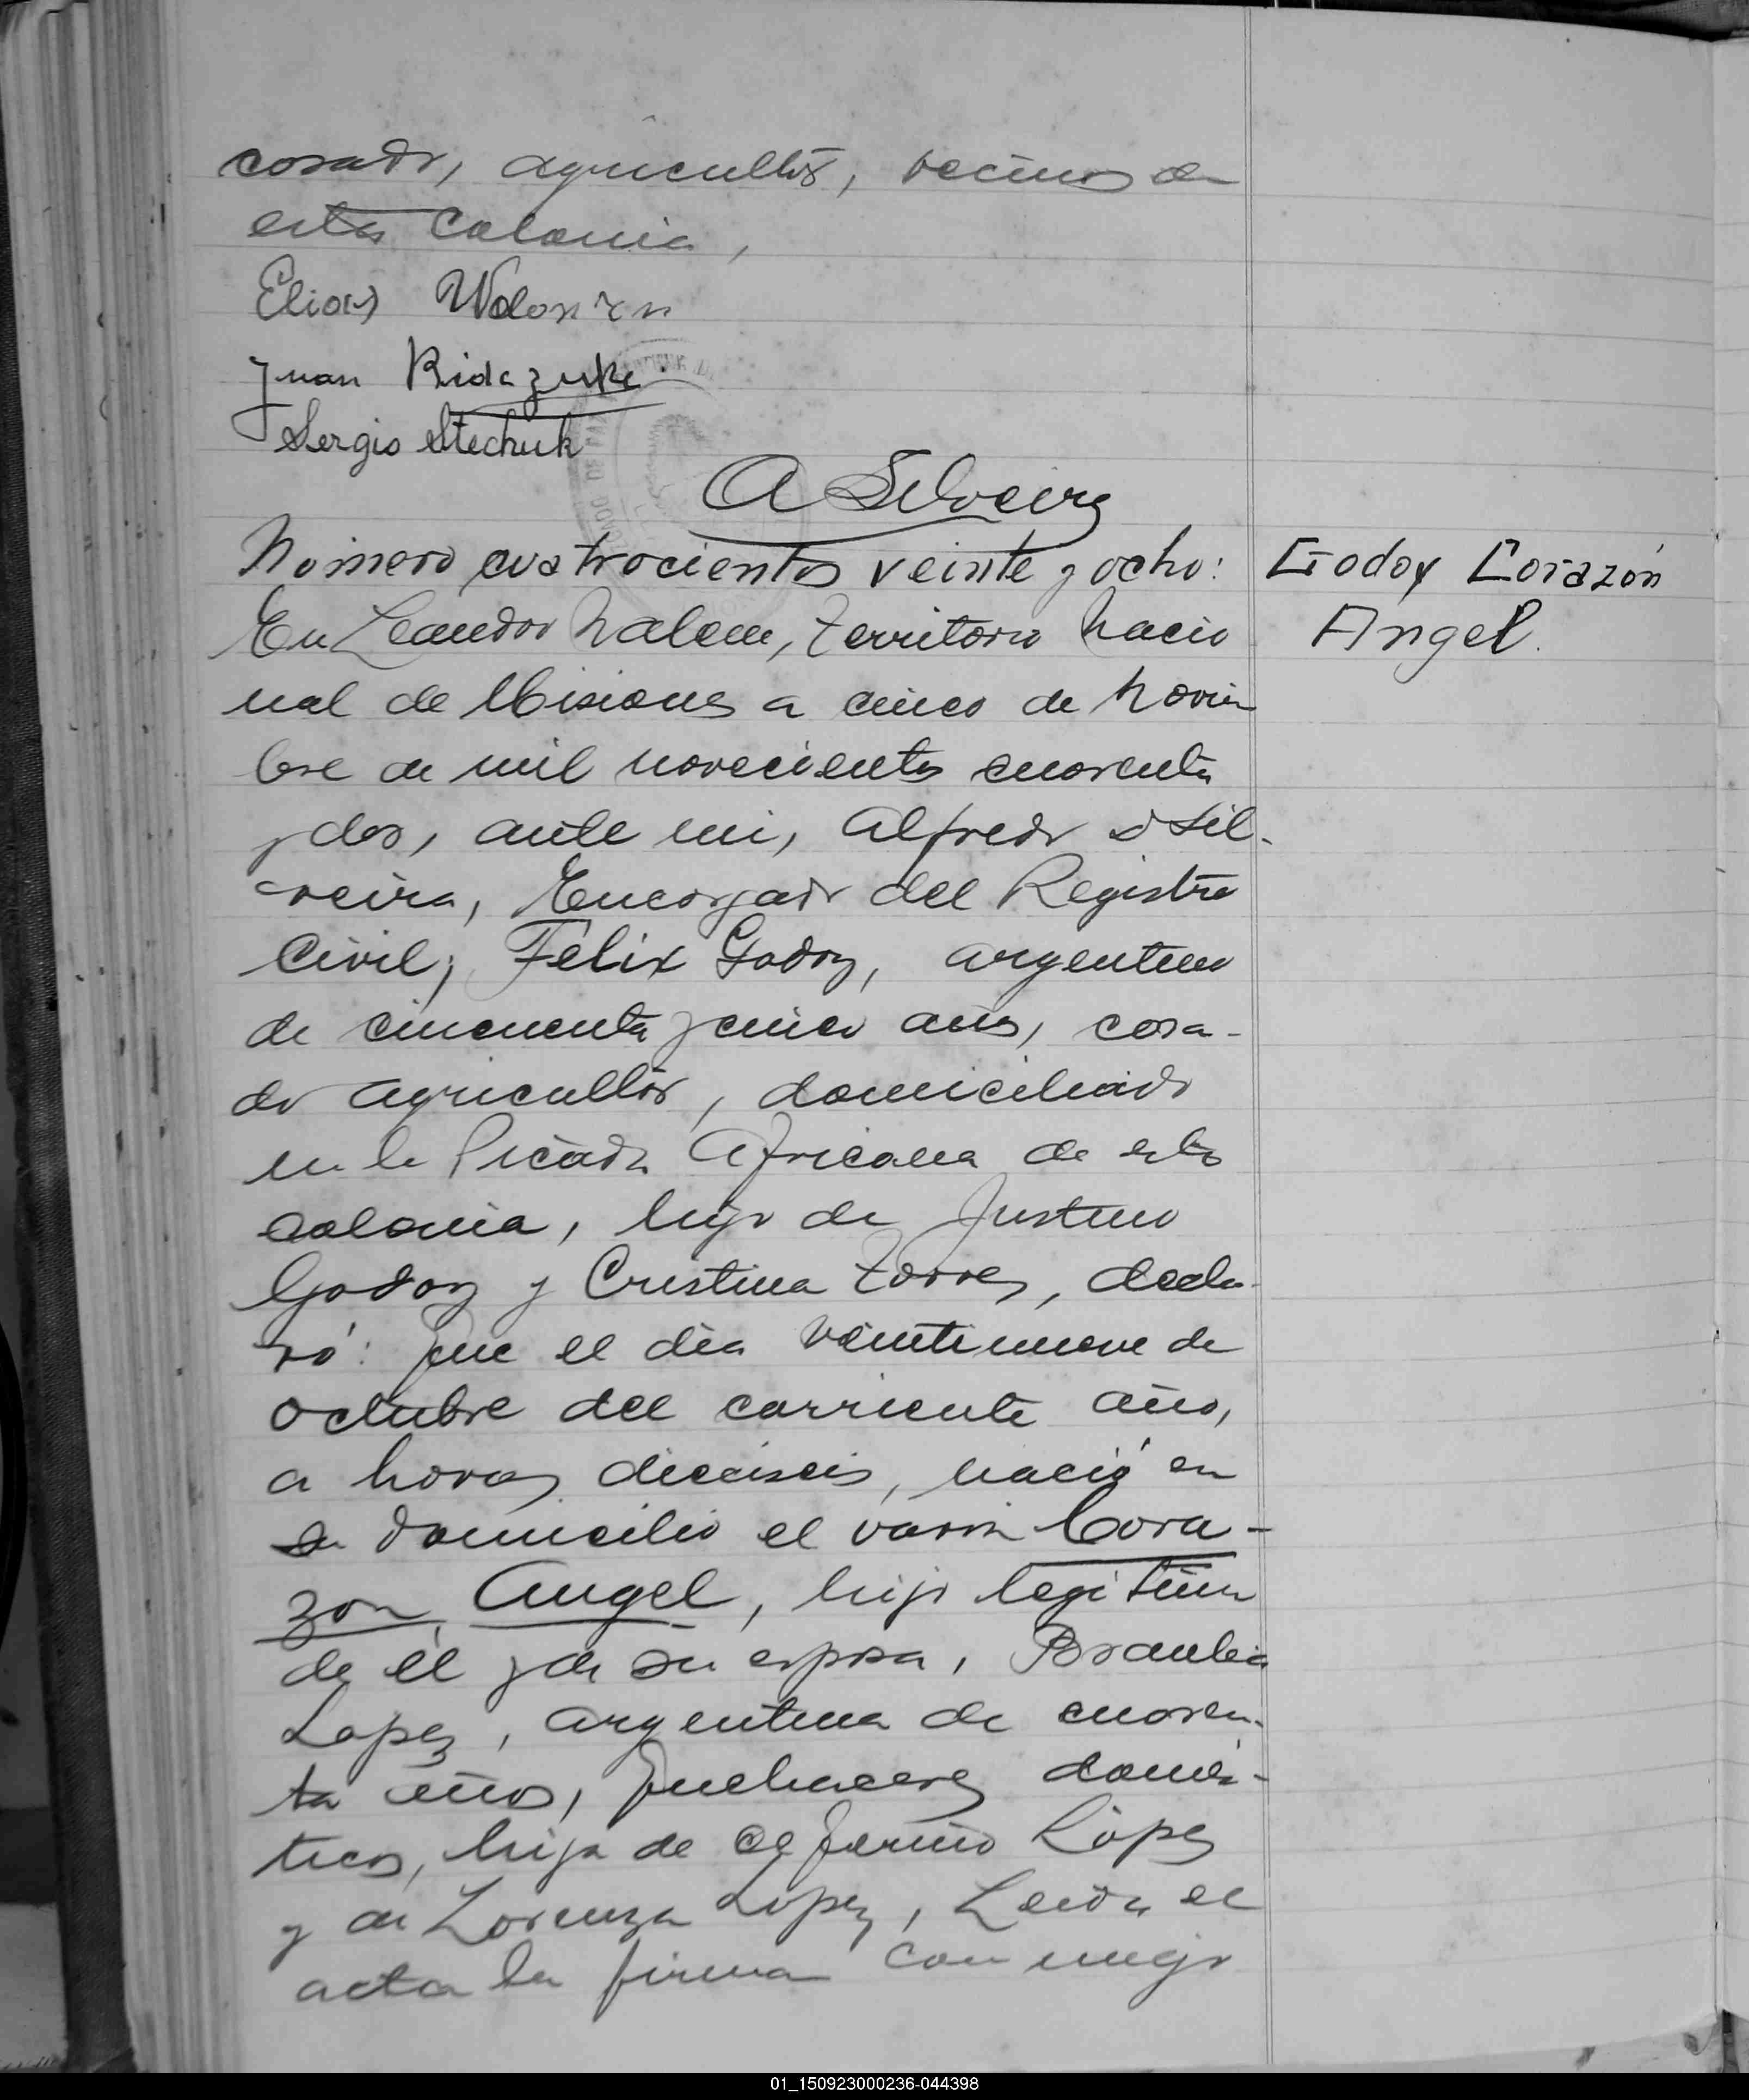 casado, agricultor, vecinos de
esta Colonia,
Elias
Juan
Sergio Stechuk
A Silveira
Número cuatrocientos veinte y ocho:
Godoy Corazón
En Leandro N alem, territorio Nacio
Angel.
nal de Misiones a cinco de Noviem
bre de mil novecientos cuarenta
y dos, ante mi, Alfredo Sil-
veira, Encargado del Registro
Civil; Félix Godoy, argentino
de cincuenta y cinco años, casa-
do agricultor, domiciliado
en la Picada Africana de esta
Colonia, hijo de Justino
Godoy y Cristina Torres, decla-
ró: que el día veintinueve de
octubre del corriente año,
a horas dieciseis, nació en
su domicilio el varón Cora-
zon Angel, hijo legitimo
de él y de su esposa, Braulia
Lopez, argentina de cuaren-
ta años, quehaceres domés-
ticos, hija de Ceferino López
y de Lorenza López, Leida el
acta la firma conmigo
01_150923000236-044398